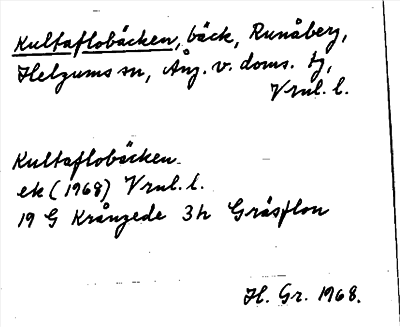 Kultaflobäcken, bäck, Runåberg,
Helgums sn, Ång. v. doms. tg,
Vrul. l.
Kultaflobäcken.
ek (1968) Vrul. l.
19 G Krångede 3h Gråsjlon
H. Gr. 1968.